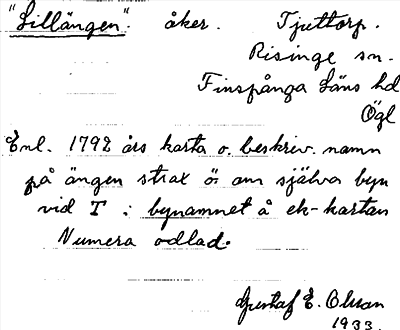 "Lillängen". åker. Tjuttorp.
Risinge sn.
Finspånga Läns hd
Ögl
Enl. 1792 års karta o. beskriv. namn
på ängen strax ö. om själva byn
vid T i bynamnet å ek-kartan
Numera odlad.
Gustaf E. Olsson
1933.